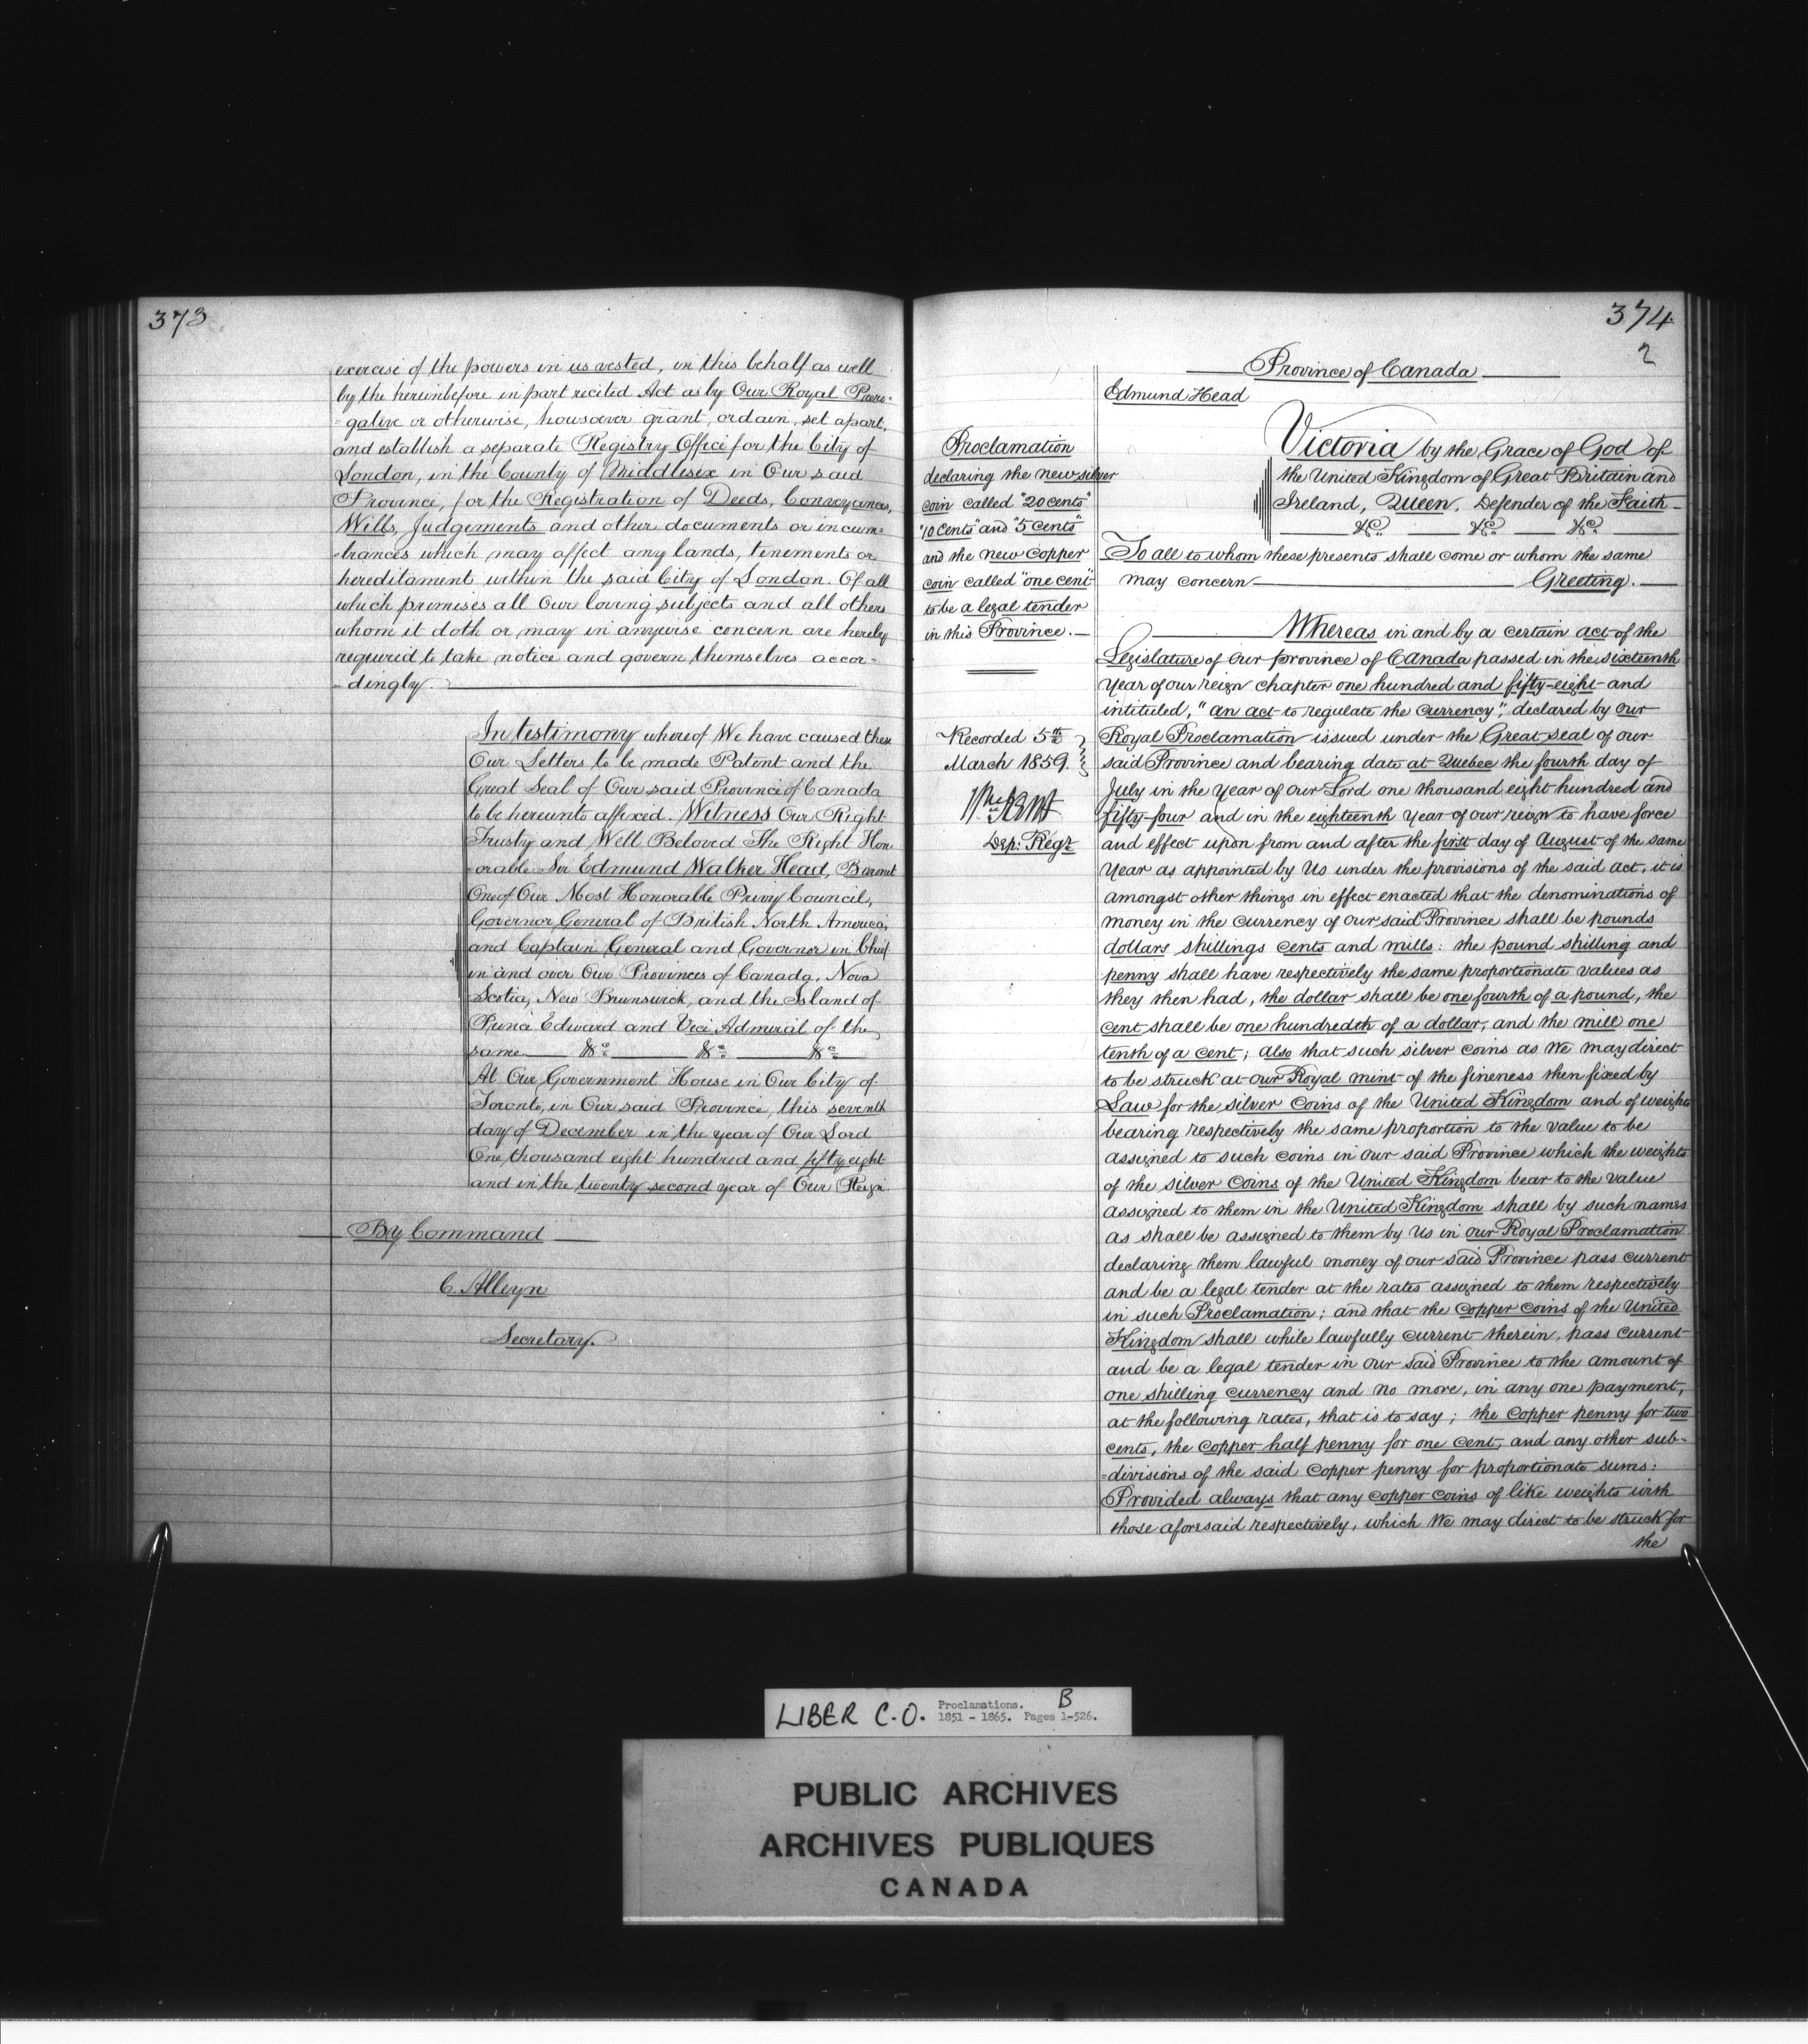 373
exercise of the powers in us vested, in this behalf as well
by the hereinbefore in part recited Act as by Our Royal Prero-
-gative or otherwise, howsoever grant, ordain, set apart,
and establish a separate Registry Office for the City of
London, in the County of Middlesex in Our said
Province, for the Registration of Deeds, Conveyances,
Wills, Judgements and other documents or incum=
-brances which may affect any lands, tenements or
hereditament within the said City of London. Of all
which premises all Our loving subjects and all others
whom it doth or may in anywise concern are hereby
required to take notice and govern themselves accor=
-dingly.
In testimony whereof We have caused these
Our Letters to be made Patent and the
Great Seal of Our said Province of Canada
to be hereunto affixed. Witness Our Right
Trusty and Well Beloved The Right Hon-
-orable Sir Edmund Walker Head, Baronet
One of Our Most Honorable Privy Council,
Governor General of British North America,
and Captain General and Governor in Chief
in and over Our Provinces of Canada, Nova
Scotia, New Brunswick, and the Island of
Prince Edward and Vice Admiral of the
same &c. &c. &c.
At Our Government House in Our City of
Toronto, in Our said Province, this seventh
day of December in the year of Our Lord
One thousand eight hundred and fifty eight
and in the twenty second year of Our Reign
By Command
C. Alleyn
Secretary.
374
2
Province of Canada
Edmund Head
Proclamation
declaring the new silver
coin called "20 cents"
"10 Cents" and "5 Cents"
and the new Copper
coin called "one cent"
to be a legal tender
in this Province.
Recorded 5th
March 1859.
Dep: Regr
Victoria by the Grace of God of
the United Kingdom of Great Britain and
Ireland, Queen, Defender of the Faith
&c. &c. &c.
To all to whom these presents shall come or whom the same
may concern Greeting.
Whereas in and by a certain act of the
Legislature of our province of Canada passed in the sixteenth
Year of our reign chapter one hundred and fifty-eight and
intituled, "an act to regulate the currency", declared by our
Royal Proclamation issued under the Great seal of our
said Province and bearing date at Quebec the fourth day of
July in the Year of our Lord one thousand eight hundred and
fifty-four and in the eighteenth Year of our reign to have force
and effect upon from and after the first day of August of the same
Year as appointed by Us under the provisions of the said act, it is
amongst other things in effect enacted that the denominations of
money in the currency of our said Province shall be pounds
dollars shillings cents and mills: the pound shilling and
penny shall have respectively the same proportionate values as
they then had, the dollar shall be one fourth of a pound, the
cent shall be one hundredth of a dollar, and the mill one
tenth of a cent; also that such silver coins as We may direct
to be struck at our Royal mint of the fineness then fixed by
Law for the silver Coins of the United Kingdom and of weights
bearing respectively the same proportion to the value to be
assigned to such coins in our said Province which the weights
of the silver Coins of the United Kingdom bear to the value
assigned to them in the United Kingdom shall by such names
as shall be assigned to them by Us in our Royal Proclamation
declaring them lawful money of our said Province pass current
and be a legal tender at the rates assigned to them respectively
in such Proclamation; and that the copper coins of the United
Kingdom shall while lawfully current therein, pass current
and be a legal tender in our said Province to the amount of
one shilling currency and no more, in any one payment,
at the following rates, that is to say; the copper penny for two
cents, the copper half penny for one cent, and any other sub-
=divisions of the said copper penny for proportionate sums:
Provided always that any copper coins of like weights with
those aforesaid respectively, which We may direct to be struck for
the
LIBER C.O. Proclamations. B
1851 - 1865. Pages 1-526.
PUBLIC ARCHIVES
ARCHIVES PUBLIQUES
CANADA